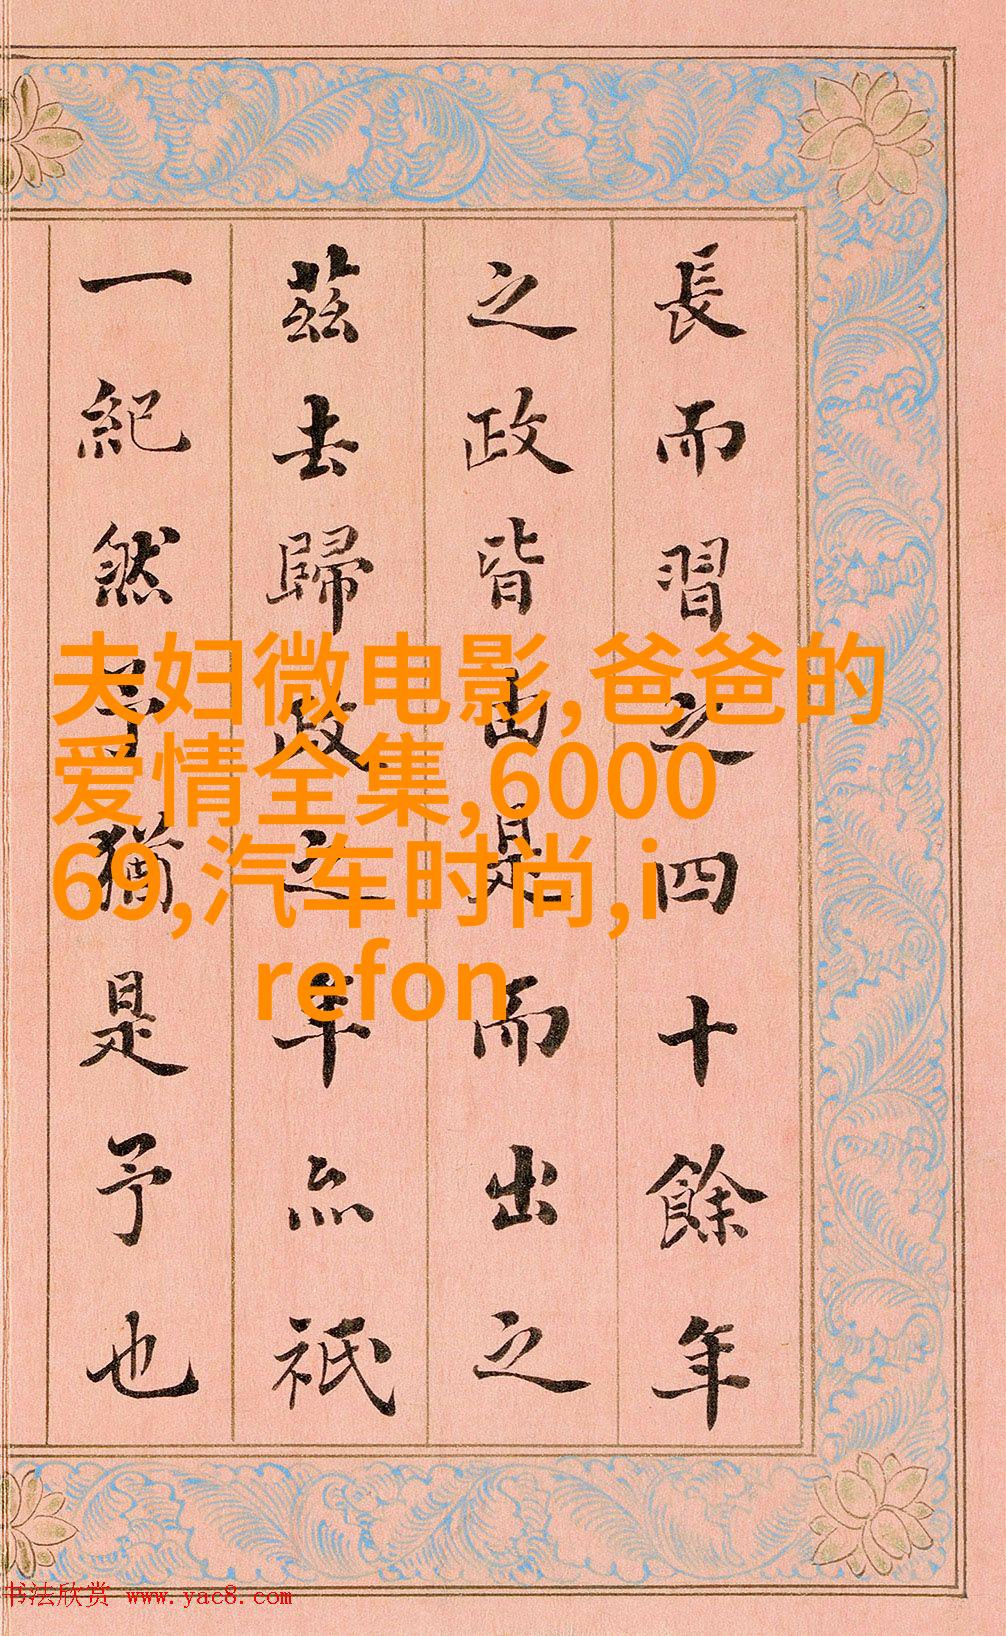 長而習之四十餘年
之政皆由是而出之
茲去歸政之年亦祇
一紀然予猶是予也
夫妇微电影,爸爸的
爱情全集,6000
69,汽车时尚,i
refon
书法欣赏 www.yac8.com